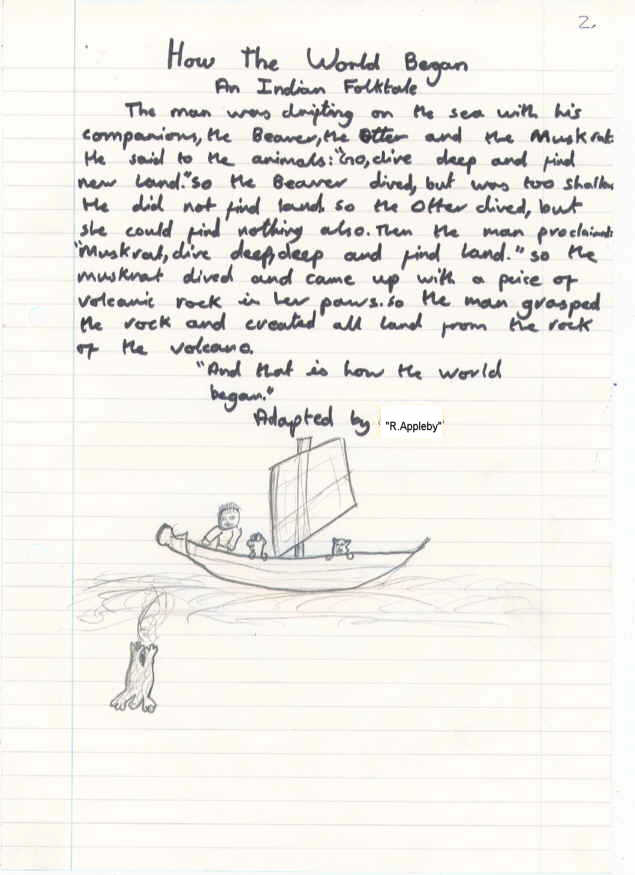 2.
How The World Began
An Indian Folktale
The man was drifting on the sea with his
companions, the Beaver, the Otter and the Muskrat.
He said to the animals: "Go, dive deep and find
new land." So the Beaver dived, but was too shallow
He did not find land. So the Otter dived, but
she could find nothing also. Then the man proclaimed:
"Muskrat, dive deep, deep and find land." So the
muskrat dived and came up with a peice of
volcanic rock in her paws. So the man grasped
the rock and created all land from the rock
of the volcano.
"And that is how the world
began."
Adapted by "R.Appleby"